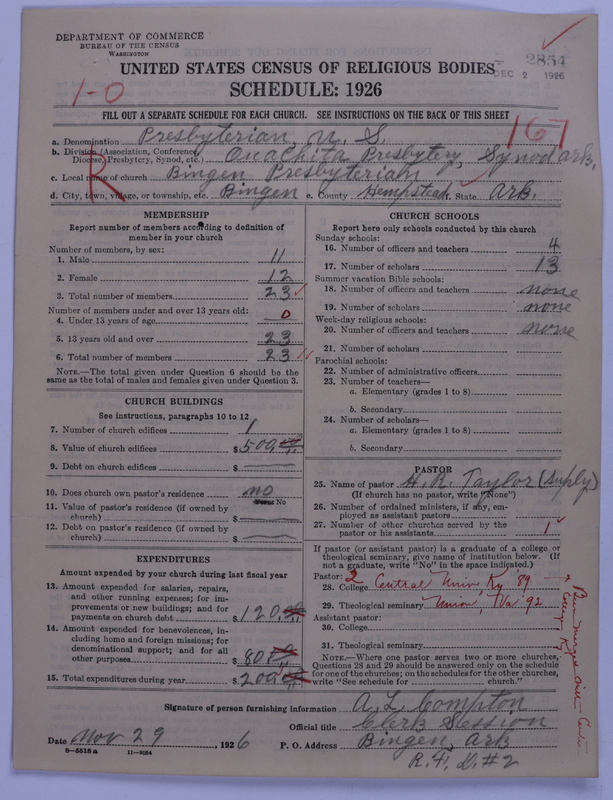 DEPARTMENT OF COMMERCE
BUREAU OF THE CENSUS
WASHINGTON
2854
DEC 2 1926
UNITED STATES CENSUS OF RELIGIOUS BODIES
SCHEDULE: 1926
1-0
FILL OUT A SEPARATE SCHEDULE FOR EACH CHURCH. SEE INSTRUCTIONS ON THE BACK OF THIS SHEET
167
R
a. Denomination Presbyterian U. S.
b. Division (Association, Conference, Diocese, Presbytery, Synod, etc.) Ouachita Presbytery, Synod Ark.
c. Local name of church Bingen Presbyterian
d. City, town, village, or township, etc. Bingen e. County Hempstead, State Ark.
MEMBERSHIP
Report number of members according to definition of member in your church
Number of members, by sex:
1. Male 11
2. Female 12
3. Total number of members 23
Number of members under and over 13 years old:
4. Under 13 years of age 0
5. 13 years old and over 23
6. Total number of members 23
NOTE.—The total given under Question 6 should be the same as the total of males and females given under Question 3.
CHURCH BUILDINGS
See instructions, paragraphs 10 to 12
7. Number of church edifices 1
8. Value of church edifices $500.00
9. Debt on church edifices $
10. Does church own pastor's residence no
Yes or No
11. Value of pastor's residence (if owned by church) $
12. Debt on pastor's residence (if owned by church) $
EXPENDITURES
Amount expended by your church during last fiscal year
13. Amount expended for salaries, repairs, and other running expenses; for improvements or new buildings; and for payments on church debt $120.00
14. Amount expended for benevolences, including home and foreign missions; for denominational support; and for all other purposes $80.00
15. Total expenditures during year $200.00
CHURCH SCHOOLS
Report here only schools conducted by this church
Sunday schools:
16. Number of officers and teachers 4
17. Number of scholars 13
Summer vacation Bible schools:
18. Number of officers and teachers none
19. Number of scholars none
Week-day religious schools:
20. Number of officers and teachers none
21. Number of scholars
Parochial schools:
22. Number of administrative officers
23. Number of teachers—
a. Elementary (grades 1 to 8)
b. Secondary
24. Number of scholars—
a. Elementary (grades 1 to 8)
b. Secondary
PASTOR
25. Name of pastor H. R. Taylor (Suply)
(If church has no pastor, write "None")
26. Number of ordained ministers, if any, employed as assistant pastors
27. Number of other churches served by the pastor or his assistants 1
If pastor (or assistant pastor) is a graduate of a college or theological seminary, give name of institution below. (If not a graduate, write "No" in the space indicated.)
Pastor: 2
28. College Central Univ Ky 89
29. Theological seminary Union, Va 92
Assistant pastor:
30. College
31. Theological seminary
NOTE.—Where one pastor serves two or more churches, Questions 28 and 29 should be answered only on the schedule for one of the churches; on the schedules for the other churches, write "See schedule for church."
Signature of person furnishing information A. L. Compton
Official title Clerk Session
Date Nov 29, 1926 P. O. Address Bingen, Ark
R. F. D. #2
8-5516 a 11-9064